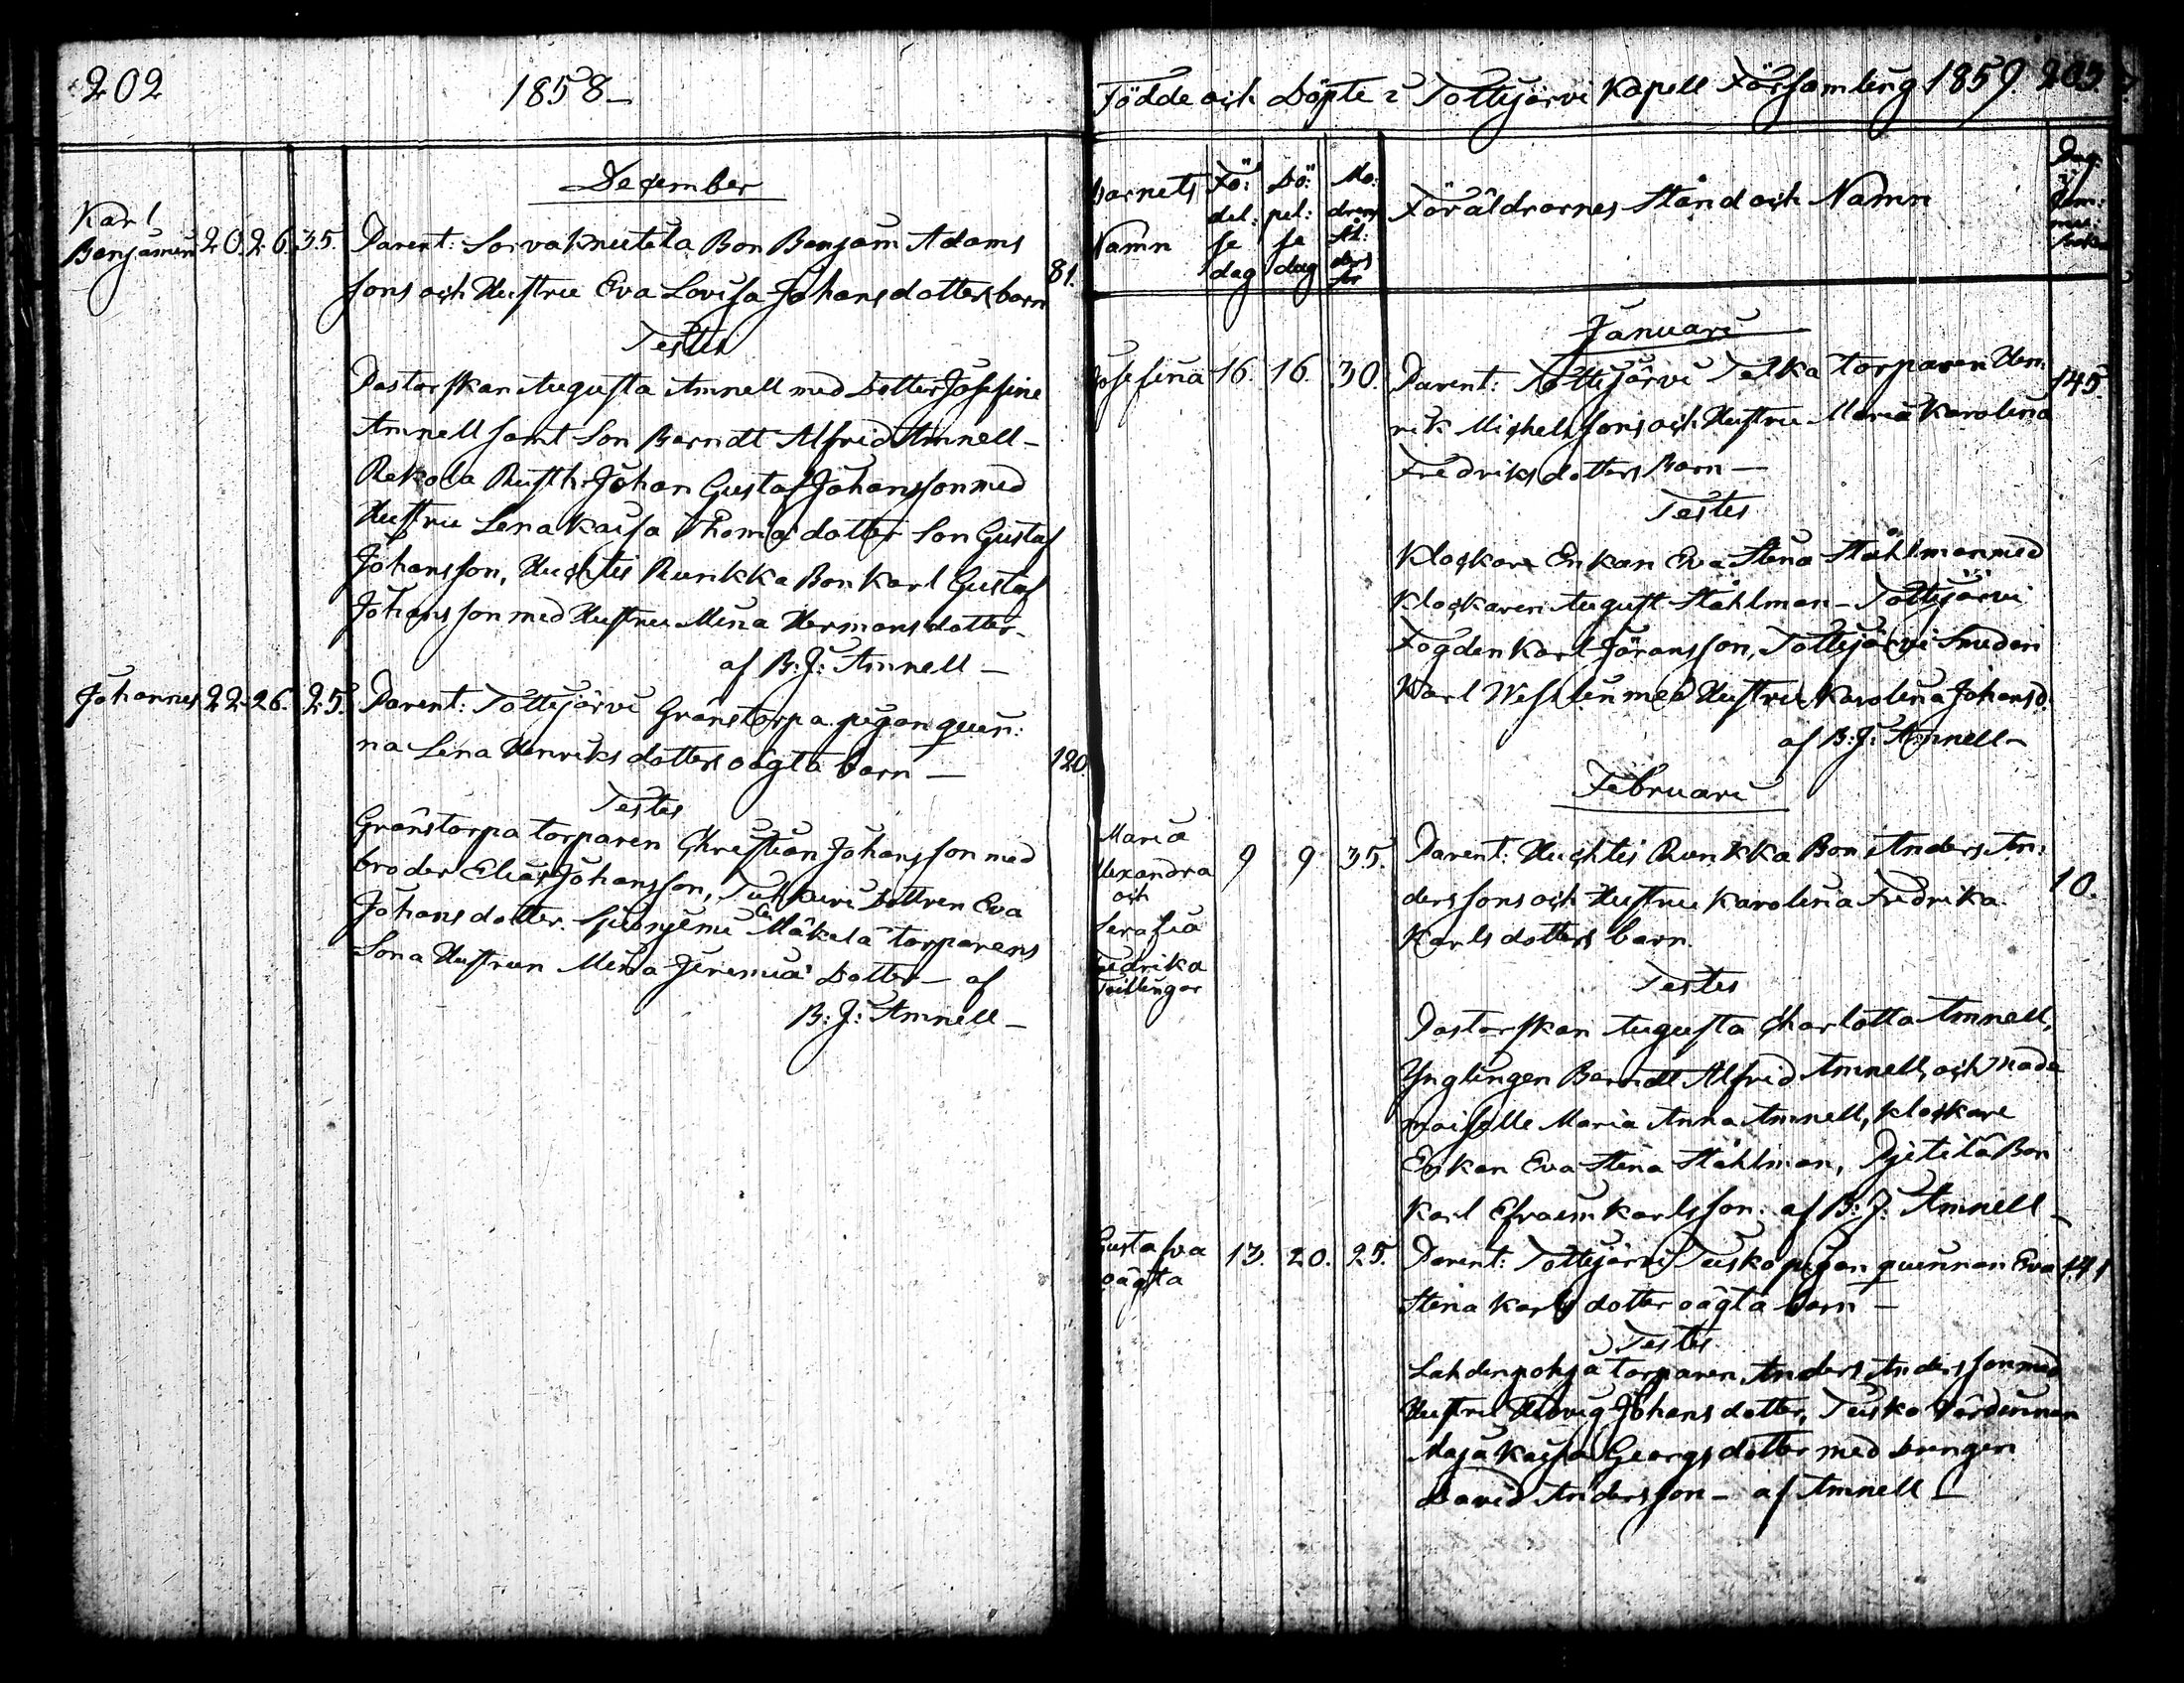 202
1858
December
Karl
Benjamin 20. 26. 35. Parent: Sorva Knuutila Bon Benjam Adams
sons och Hustru Eva Lovisa Johansdotters barn 81.
Testes
Pastorskan Augusta Amnell med Dotter Josefine
Amnell samt Son Berndt Alfrid Amnell –
Rekola Rusth: Johan Gustaf Johansson med
Hustru Lena Kaisa Thomasdotter Son Gustaf
Johansson, Huchtis Runkka Bon Karl Gustaf
Johansson med Hustru Mina Hermansdotter –
af B: J: Amnell –
Johannes 22. 26. 25. Parent: Tottijärvi Gränstorpa pigan quin:
na Lena Henriksdotters oägta barn – 120.
Testes
Gränstorpa torparen Christian Johansson med
broder Elias Johansson, Dottren Eva
Johansdotter. Mäkelä torparens
Sona Hustrun Mina Jeremiä Dotter – af
B: J: Amnell –
Födde och Döpte i Tottijärvi Kapell Församling 1859. 203.
Barnets Namn
Fö: del: se dag
Dö: pel: se dag
Mo: drens Ål: ders år
Föräldrarnes Stånd och Namn
Januari
Josefina 16. 16. 30. Parent: Tottijärvi torparen Hen: 145.
rik Michelssons och Hustru Maria Karolina
Fredriksdotters Barn –
Testes
Klockare Enkan Eva Stina Ståhlman med
Klockaren August Ståhlman – Tottijärvi
Fogden Karl Göransson, Tottijärvi Smeden
Karl Wesslin med Hustru Karolina Johansd:
af B: J: Amnell –
Februari
Maria
Alexandra
och
Serafia
Fredrika
Tvillingar
9 9 35. Parent: Huchtis Runkka Bon Anders An:
derssons och Hustru Karolina Fredrika 10.
Karlsdotters barn.
Testes
Pastorskan Augusta Charlotta Amnell,
Ynglingen Berndt Alfrid Amnell, och Made
moiselle Maria Anna Amnell, Klockare
Enkan Eva Stina Ståhlman, Pjetilä Bon
Karl Efraim Karlsson. af B: J: Amnell –
Gustafva
oägta
13. 20. 25. Parent: Tottijärvi Tuisko pigan quinnan Eva 141
Stina Karlsdotter oägta barn –
Testes
Lahdenpohja torparen Anders Andersson med
Hustru Hedvig Johansdotter, Tuisko Värdinnan
Maja Kaisa Georgsdotter med Drengen
David Andersson – af Amnell –